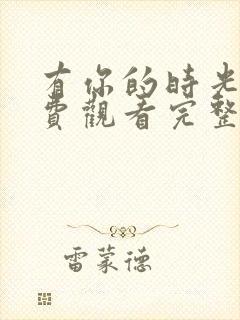 有你的時光
費觀看完整
雷蒙德